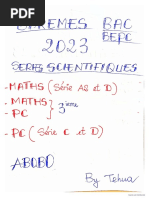 EXTREMES BAC
BEPC
2023
SERIES SCIENTIFIQUES
- MATHS (Série A2 et D)
- MATHS
- PC
3ieme
- PC (Série C et D)
ABOBO
By Tehua